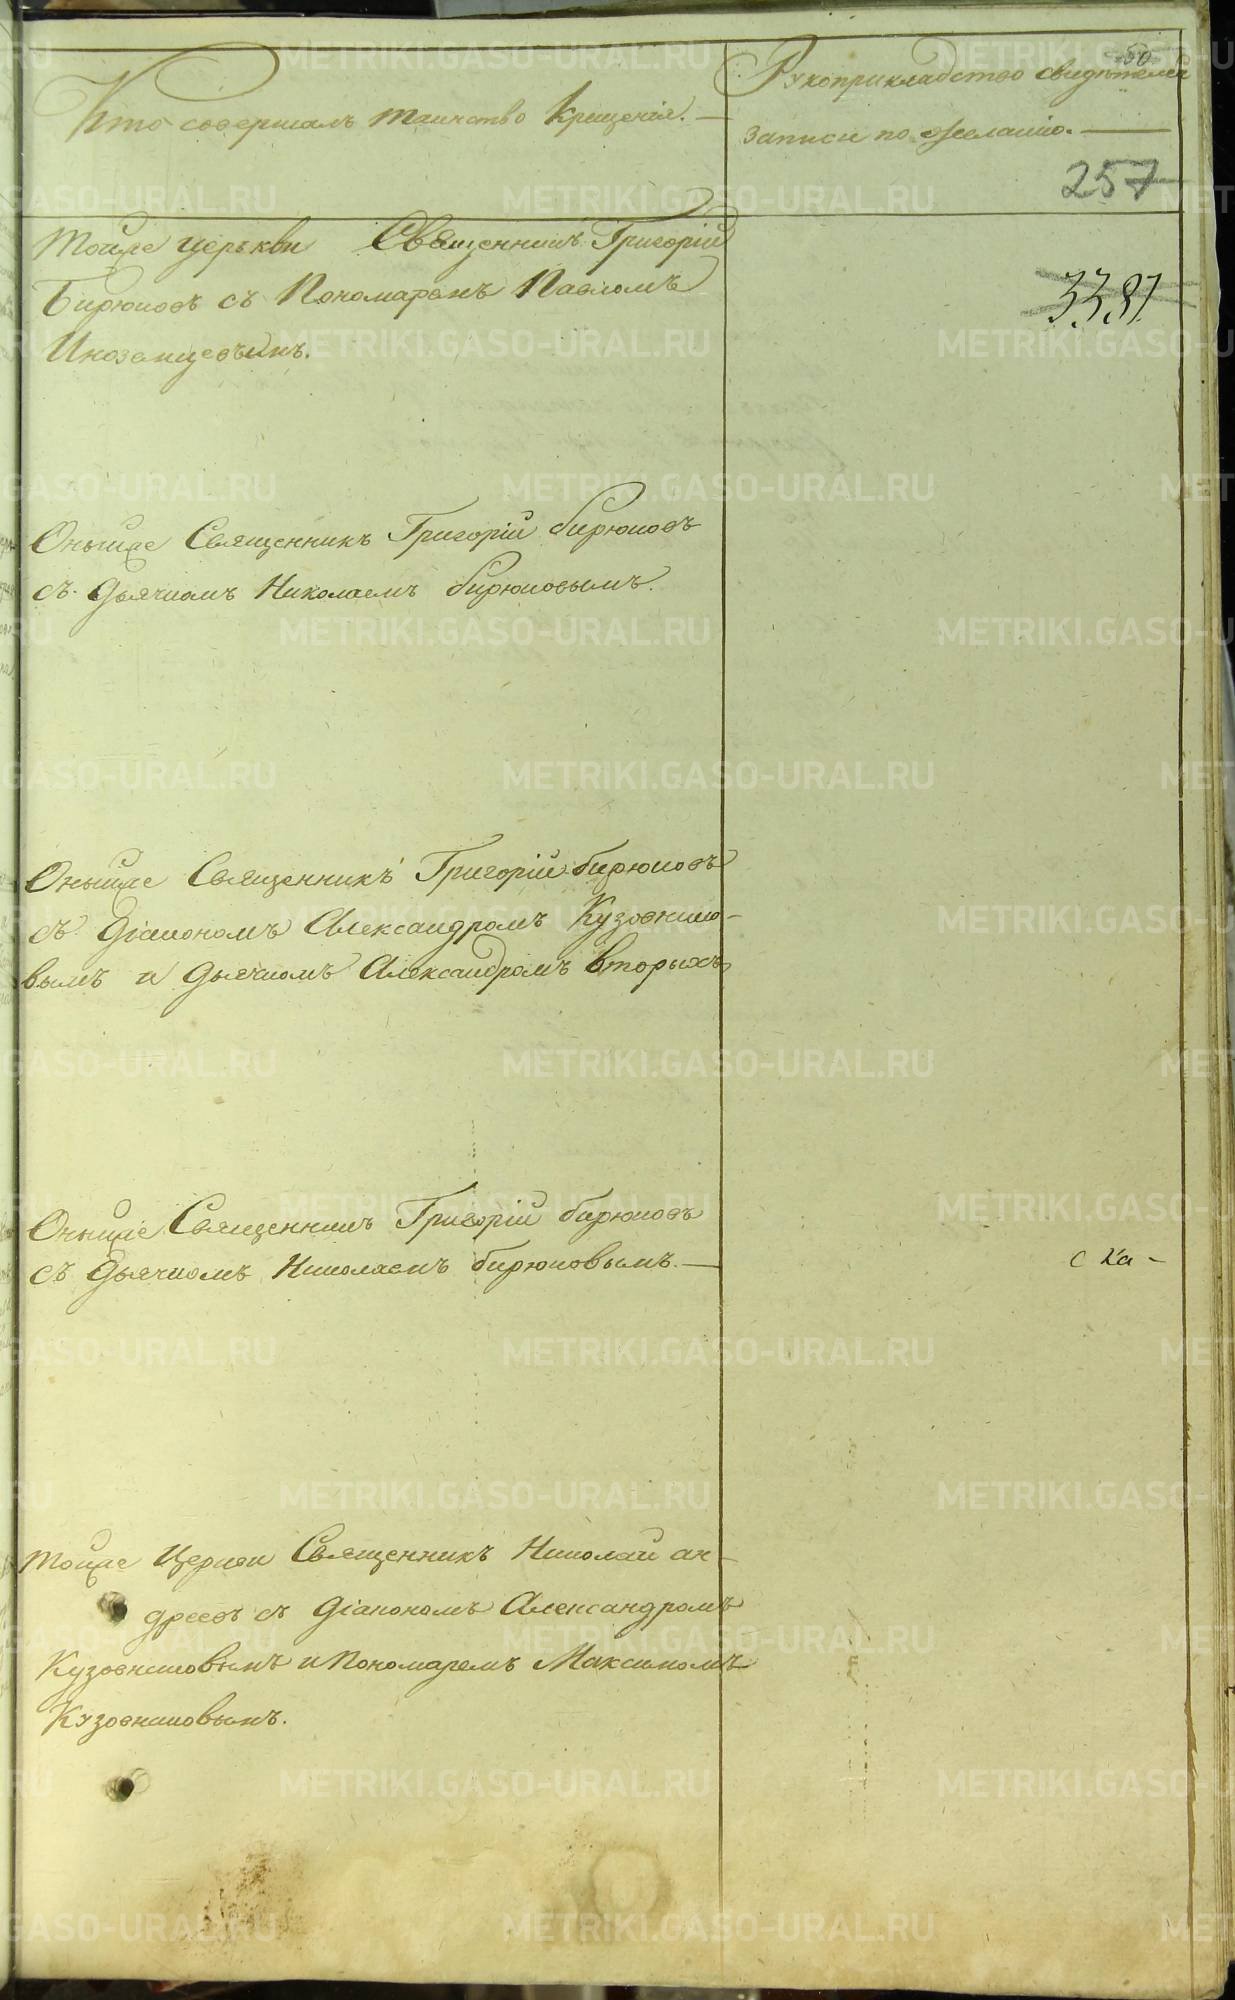 50
Кто совершалъ таинство Крещенія. —
Рукоприкладство свидѣтелей
записи по желанію. —
257
Тойже церькви Священникъ Григорій
Бирюковъ съ Пономаремъ Павломъ
Иноземцевымъ.
3381
Оныйже Священникъ Григорій Бирюковъ
съ Дьячкомъ Николаемъ Бирюковымъ.
Оныйже Священникъ Григорій Бирюковъ
съ Діакономъ Александромъ Кузовнико-
вымъ и Дьячкомъ Александромъ Вторыхъ
Оныйже Священникъ Григорій Бирюковъ
съ Дьячкомъ Николаемъ Бирюковымъ. —
с Ка -
Тойже Церкви Священникъ Николай Ан-
дреевъ съ Діакономъ Александромъ
Кузовниковымъ и Пономаремъ Максимомъ
Кузовниковымъ.
METRIKI.GASO-URAL.RU